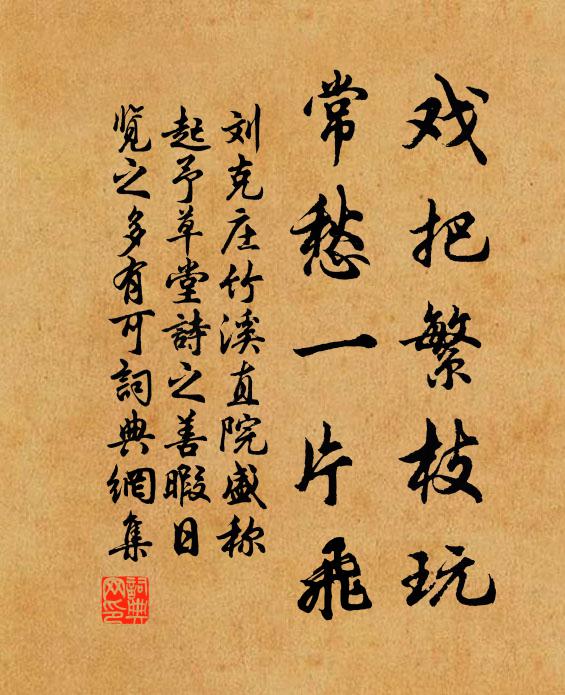 戏把繁枝玩
常愁一片飛
刘克庄竹溪直院盛称
起予草堂詩之善暇日
览之多有可詞典網集
詞典網印